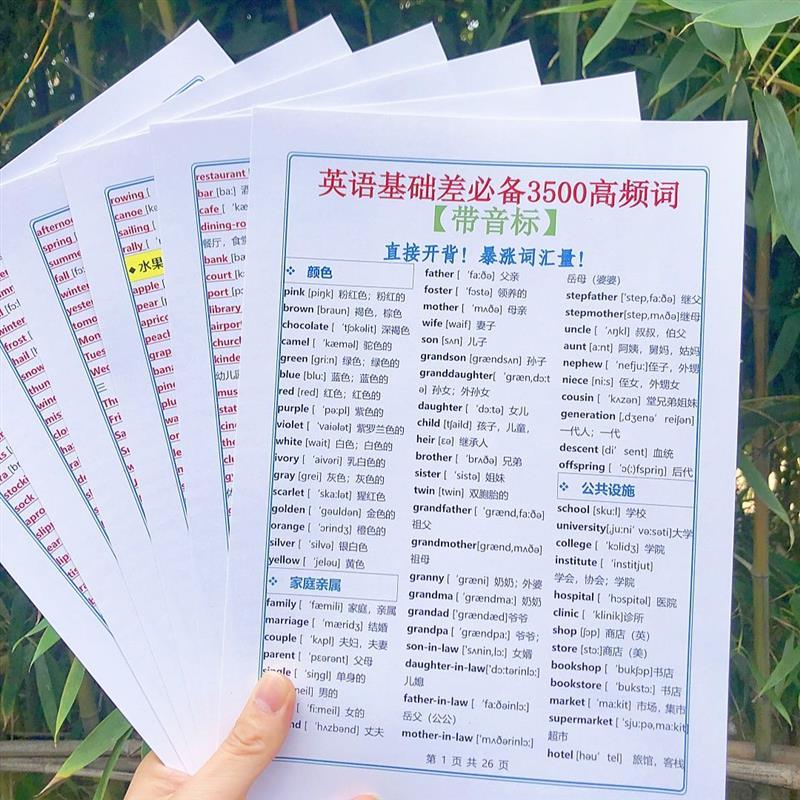 英语基础差必备3500高频词
【带音标】
直接开背！暴涨词汇量！
❖ 颜色
pink [piŋk] 粉红色；粉红的
brown [braun] 褐色，棕色
chocolate [ 'tʃɔkəlit] 深褐色
camel [ 'kæməl] 驼色的
green [gri:n] 绿色；绿色的
blue [blu:] 蓝色；蓝色的
red [red] 红色；红色的
purple [ 'pə:pl] 紫色的
violet [ 'vaiələt] 紫罗兰色的
white [wait] 白色；白色的
ivory [ 'aivəri] 乳白色的
gray [grei] 灰色；灰色的
scarlet [ 'ska:lət] 猩红色
golden [ 'gəuldən] 金色的
orange [ 'ɔrindʒ] 橙色的
silver [ 'silvə] 银白色
yellow [ 'jeləu] 黄色
❖ 家庭亲属
family [ 'fæmili] 家庭，亲属
marriage [ 'mæridʒ] 结婚
couple [ 'kʌpl] 夫妇，夫妻
parent [ 'pεərənt] 父母
single [ 'siŋgl] 单身的
meil] 男的
[ 'fi:meil] 女的
nd [ 'hʌzbənd] 丈夫
father [ 'fa:ðə] 父亲
foster [ 'fɔstə] 领养的
mother [ 'mʌðə] 母亲
wife [waif] 妻子
son [sʌn] 儿子
grandson [grændsʌn] 孙子
granddaughter[ 'græn,dɔ:t
ə] 孙女；外孙女
daughter [ 'dɔ:tə] 女儿
child [tʃaild] 孩子，儿童，
heir [εə] 继承人
brother [ 'brʌðə] 兄弟
sister [ 'sistə] 姐妹
twin [twin] 双胞胎的
grandfather [ 'grænd,fa:ðə]
祖父
grandmother[grænd,mʌðə]
祖母
granny [ 'græni] 奶奶；外婆
grandma [ 'grændma:] 奶奶
grandad ['grændæd]爷爷
grandpa [ 'grændpa:] 爷爷；
son-in-law ['sʌnin,lɔ:] 女婿
daughter-in-law['dɔ:tərinlɔ:]
儿媳
father-in-law [ 'fa:ðəinlɔ:]
岳父（公公）
mother-in-law ['mʌðərinlɔ:]
岳母（婆婆）
stepfather ['step,fa:ðə] 继父
stepmother[step,mʌðə]继母
uncle [ 'ʌŋkl] 叔叔，伯父
aunt [a:nt] 阿姨，舅妈，姑妈
nephew [ 'nefju:]侄子，外甥
niece [ni:s] 侄女，外甥女
cousin [ 'kʌzən] 堂兄弟姐妹
generation [,dʒenə' reiʃən]
一代人；一代
descent [di' sent] 血统
offspring [ 'ɔ(:)fspriŋ] 后代
❖ 公共设施
school [sku:l] 学校
university[,ju:ni' və:səti]大学
college [ 'kɔlidʒ] 学院
institute [ 'institjut]
学会，协会；学院
hospital [ 'hɔspitəl] 医院
clinic [ 'klinik]诊所
shop [ʃɔp] 商店（英）
store [stɔ:]商店（美）
bookshop [ 'bukʃɔp]书店
bookstore [ 'bukstɔ:] 书店
market [ 'ma:kit] 市场，集市
supermarket [ 'sju:pə,ma:kit]
超市
hotel [həu' tel] 旅馆，客栈
第 1 页 共 26 页
restaurant
bar [ba:] 酒
cafe [ 'kæ
dining-ro
餐厅，食堂
bank [b
court [k
port [p
library
airport
church
kinde
幼儿园
rowing [
canoe [kə
sailing [
rally [
◆ 水果
apple [
pear [
aprico
peach
grap
bana
afternoo
spring
summe
fall [fɔ
winter
frost [
hail [h
snow
thun
yester
tomo
Mon
Tues
Wed
Fri